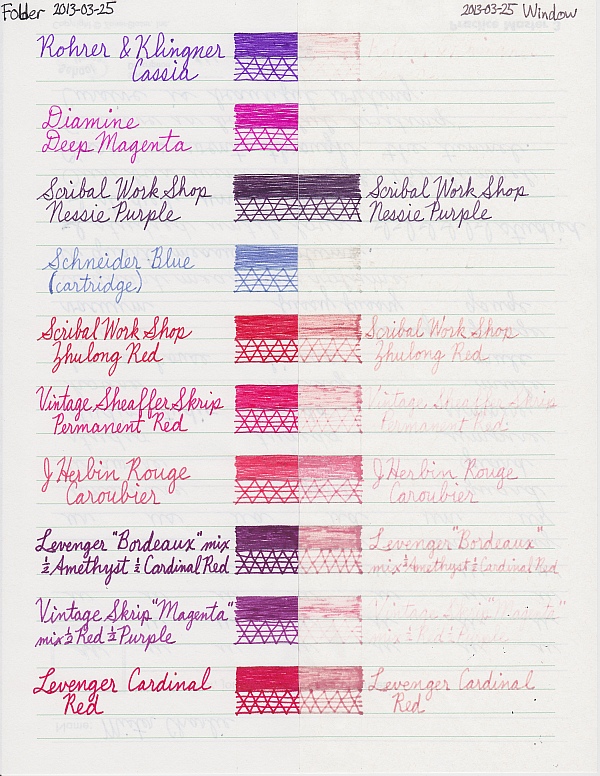 Folder 2013-03-25
2013-03-25 Window
Rohrer & Klingner
Cassia
Diamine
Deep Magenta
Scribal Work Shop
Nessie Purple
Scribal Work Shop
Nessie Purple
Schneider Blue
(cartridge)
Scribal Work Shop
Zhulong Red
Scribal Work Shop
Zhulong Red
Vintage Sheaffer Skrip
Permanent Red
Vintage Sheaffer Skrip
Permanent Red
J Herbin Rouge
Caroubier
J Herbin Rouge
Caroubier
Levenger "Bordeaux" mix
½ Amethyst ½ Cardinal Red
Levenger "Bordeaux"
mix ½ Amethyst ½ Cardinal Red
Vintage Skrip "Magenta"
mix ½ Red ½ Purple
Vintage Skrip
mix ½ Red ½
Levenger Cardinal
Red
Levenger Cardinal
Red